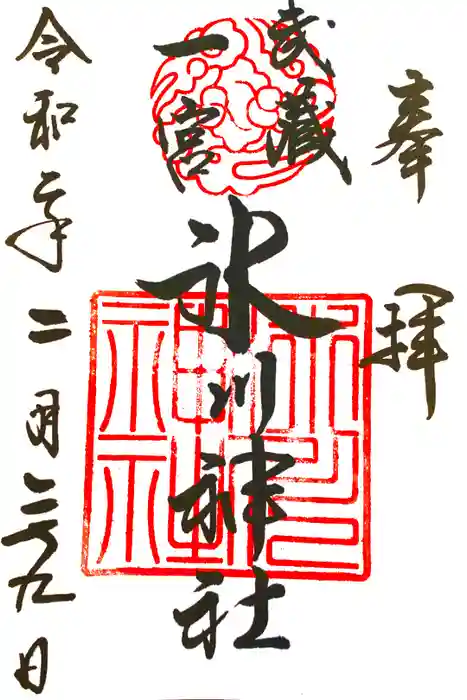 奉拝
武蔵
一宮
氷川神社
令和二年二月二十九日